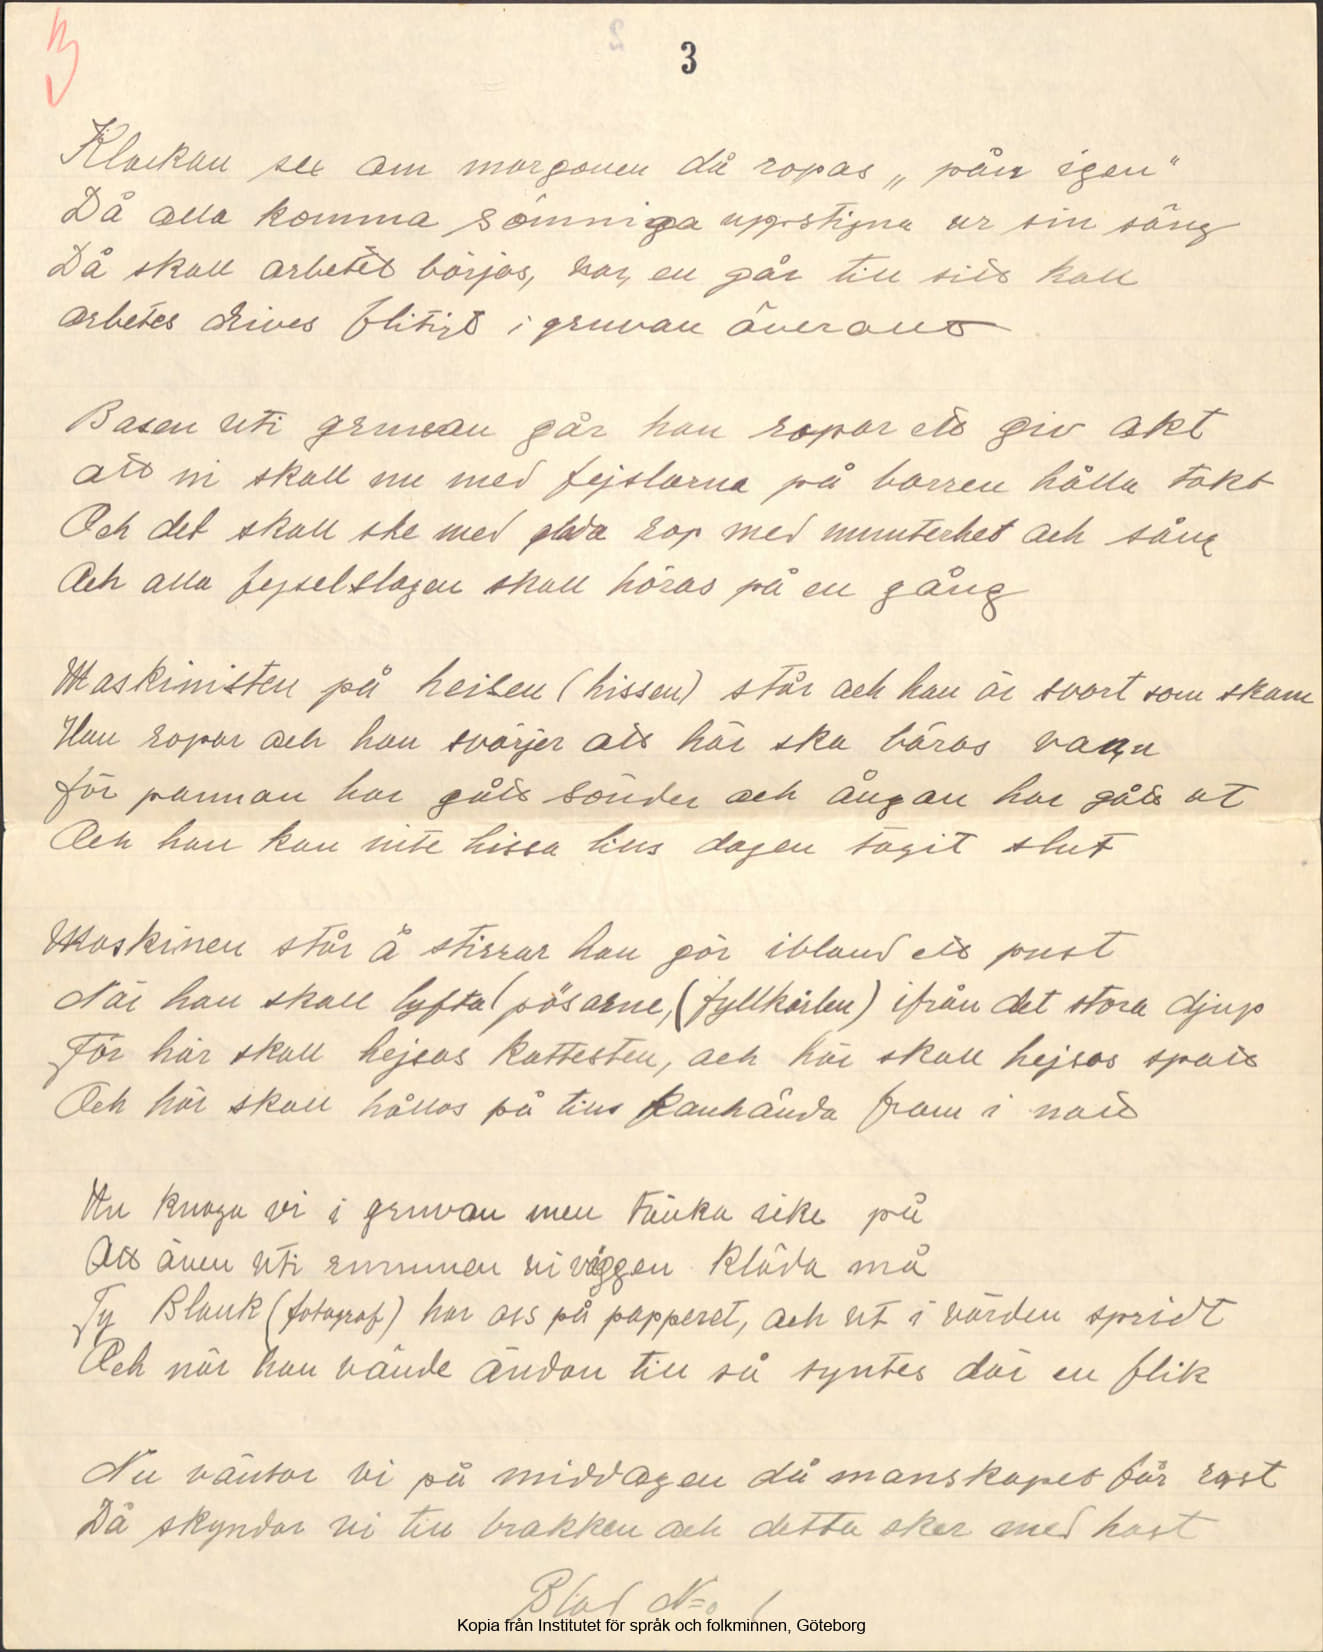 3
Klockan sex om morgonen då ropas „ pån igen"
Då alla komma sömniga uppstigna ur sin säng
Då skall arbetet börjas, var, en går till sitt håll
arbetes drives flitigt i gruvan överallt
Basen uti gruvan går han ropar ett giv akt
att ni skall nu med fejslarna på borren hålla takt
Och det skall ske med glada rop med munterhet och sång
Och alla fejselslagen skall höras på en gång
Maskinisten på heisen (hissen) står och han är svart som skam
Han ropar och han svärjer att här ska bäras vann
för pannan har gått sönder och ångan har gått ut
Och han kan inte hissa tills dagen tagit slut
Maskinen står å stirrar han gör ibland ett pust
När han skall lyfta pösarne, (fyllkärlen) ifrån det stora djup
För här skall hejsas kattesten, och här skall hejsas spatt
Och här skall hållas på tills kanhända fram i natt
Nu knoga vi i gruvan men tänka icke på
Att även uti rummen vi väggen kläda må
Ty Blank (fotograf) har oss på papperet, och ut i värden spridt
Och när han vände ändan till så syntes där en flik
Nu väntar vi på middagen då manskapet får rast
Då skyndar vi till brakken och detta sker med hast
Blad No 1
Kopia från Institutet för språk och folkminnen, Göteborg